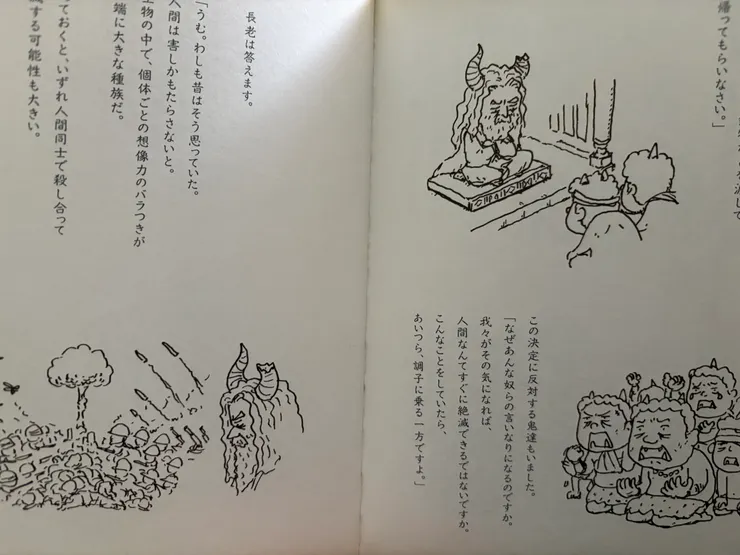 帰ってもらいなさい。」
この決定に反対する鬼達もいました。
「なぜあんな奴らの言いなりになるのですか。
我々がその気になれば、
人間なんてすぐに絶滅できるではないですか。
こんなことをしていたら、
あいつら、調子に乗る一方ですよ。」
長老は答えます。
「うむ。わしも昔はそう思っていた。
人間は害しかもたらさないと。
物の中で、個体ごとの想像力のバラつきが
端に大きな種族だ。
っておくと、いずれ人間同士で殺し合って
する可能性も大きい。